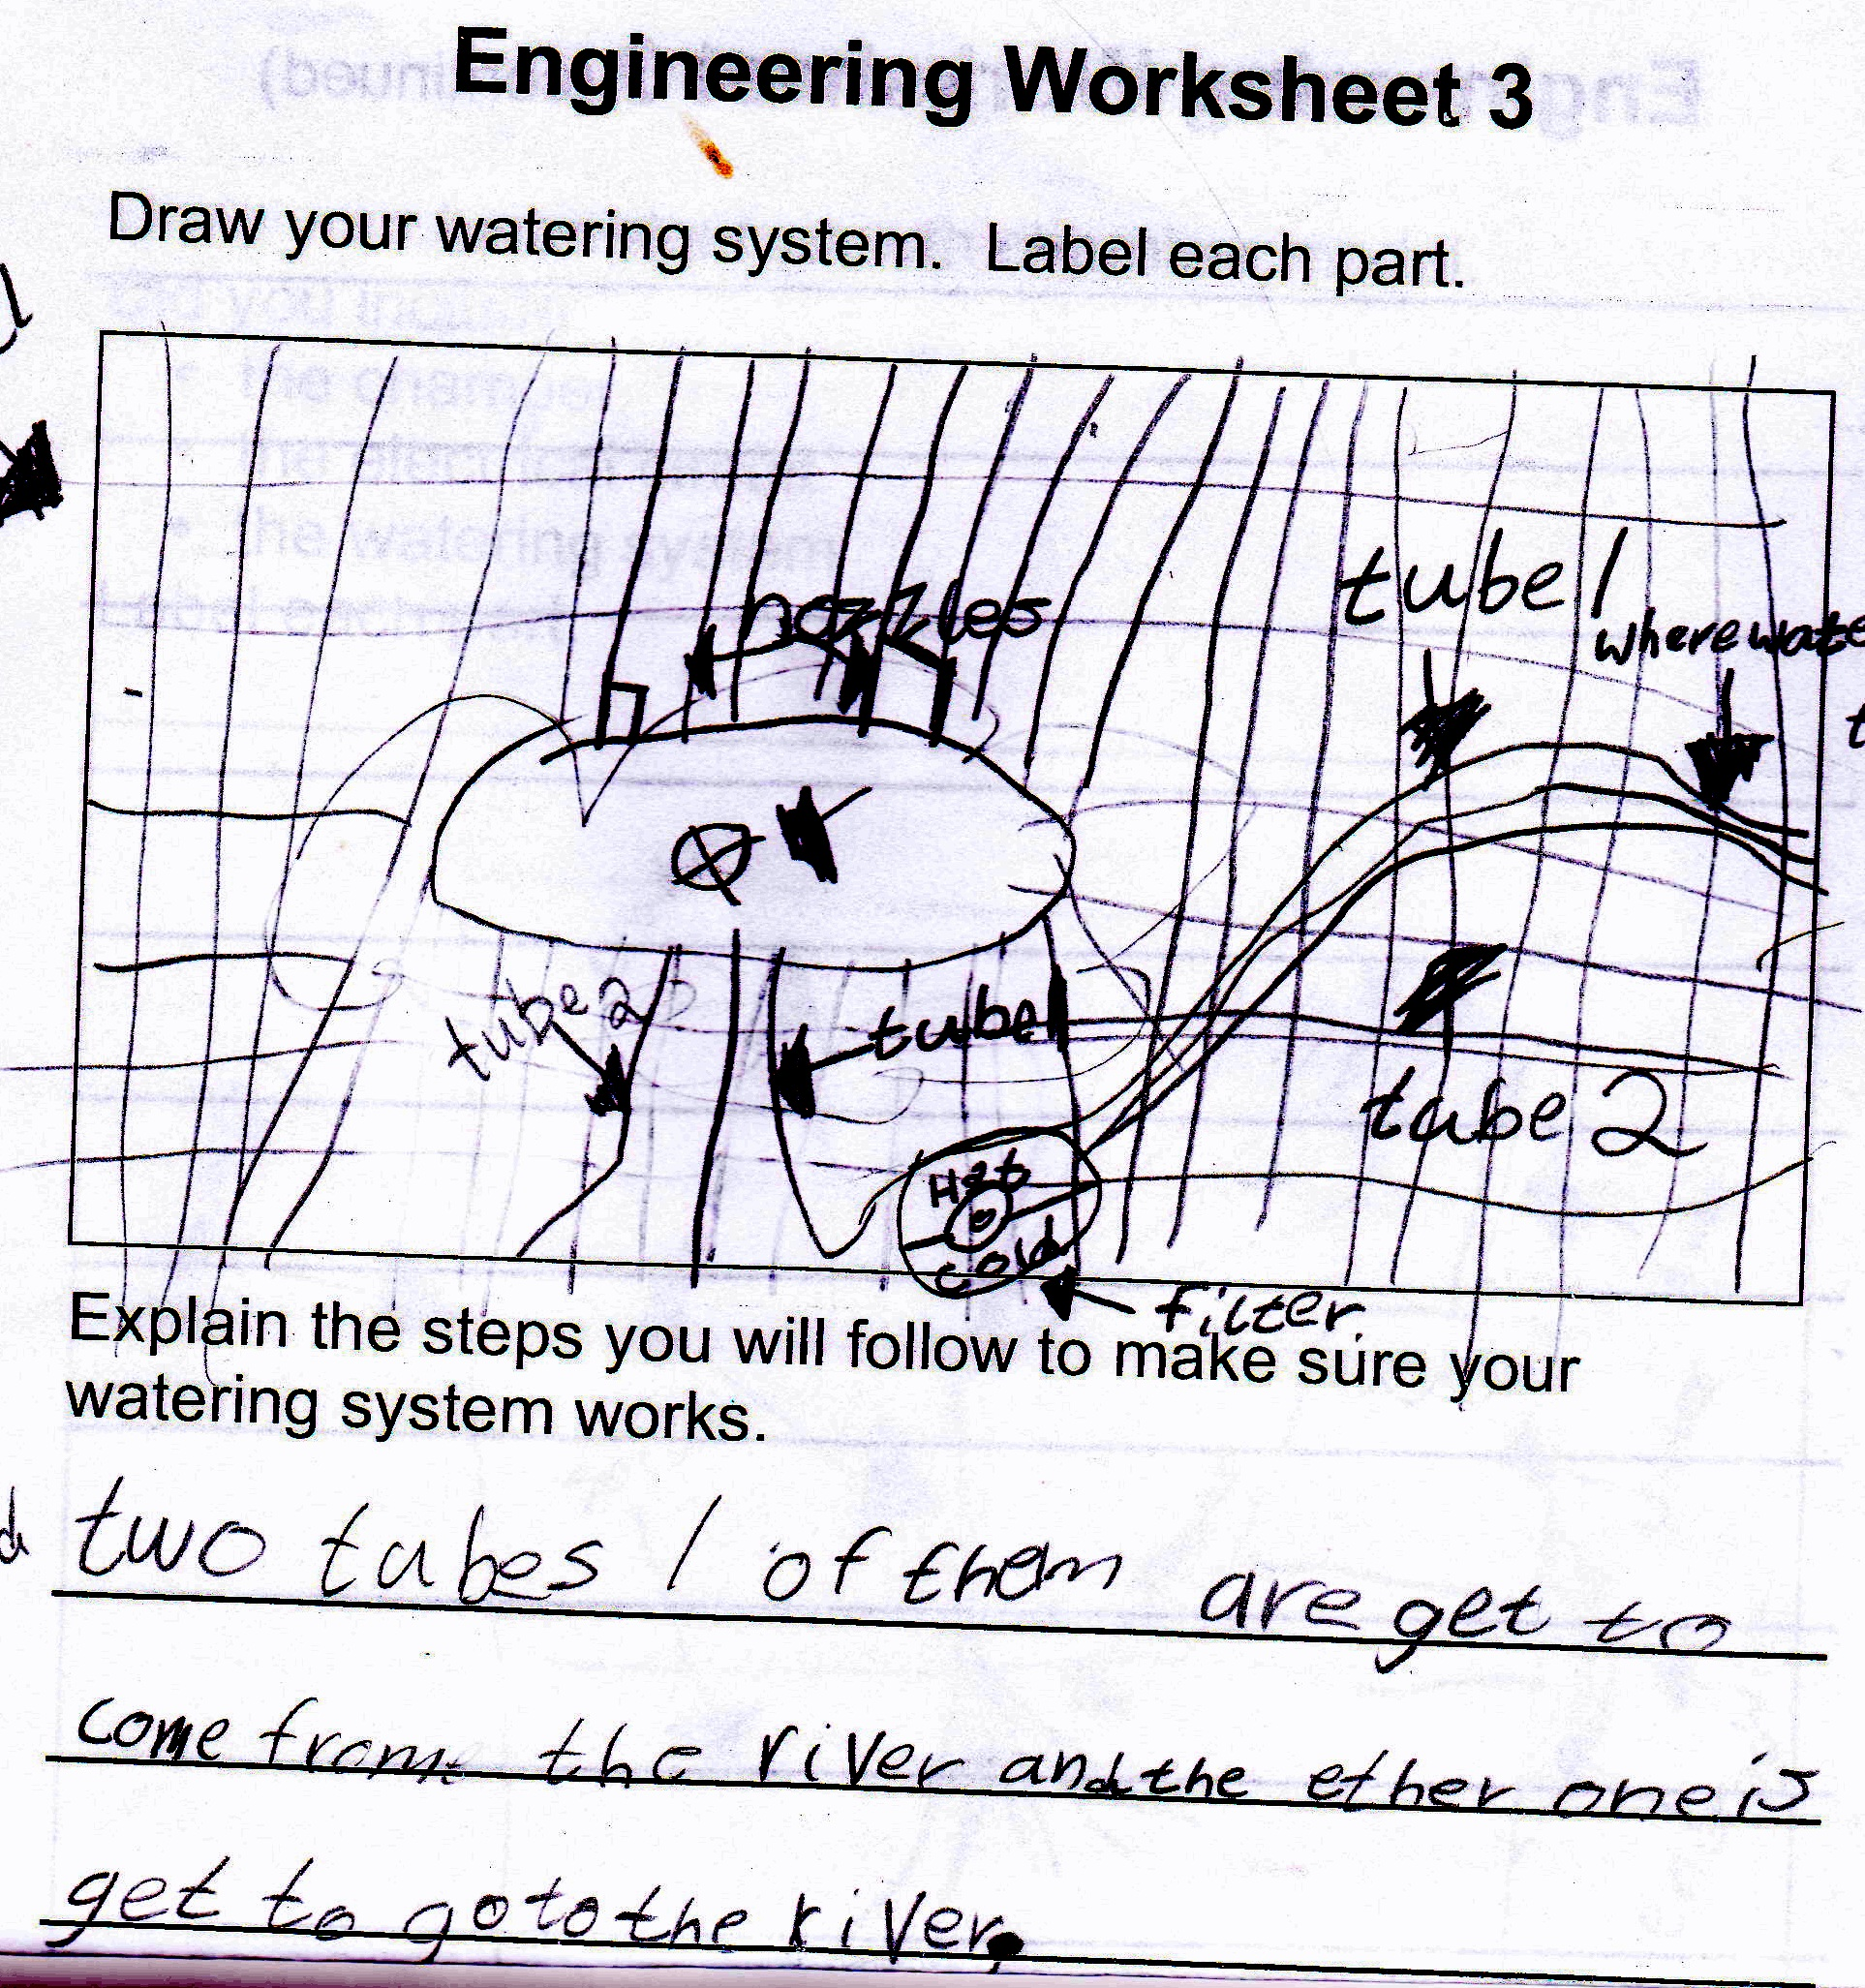 Engineering Worksheet 3
Draw your watering system. Label each part.
nozzles
tube 1
where wate
tube 2
tube 1
tube 2
Hot
cold
filter.
Explain the steps you will follow to make sure your
watering system works.
two tubes 1 of them are get to
come from the river and the ether one is
get to go to the river.